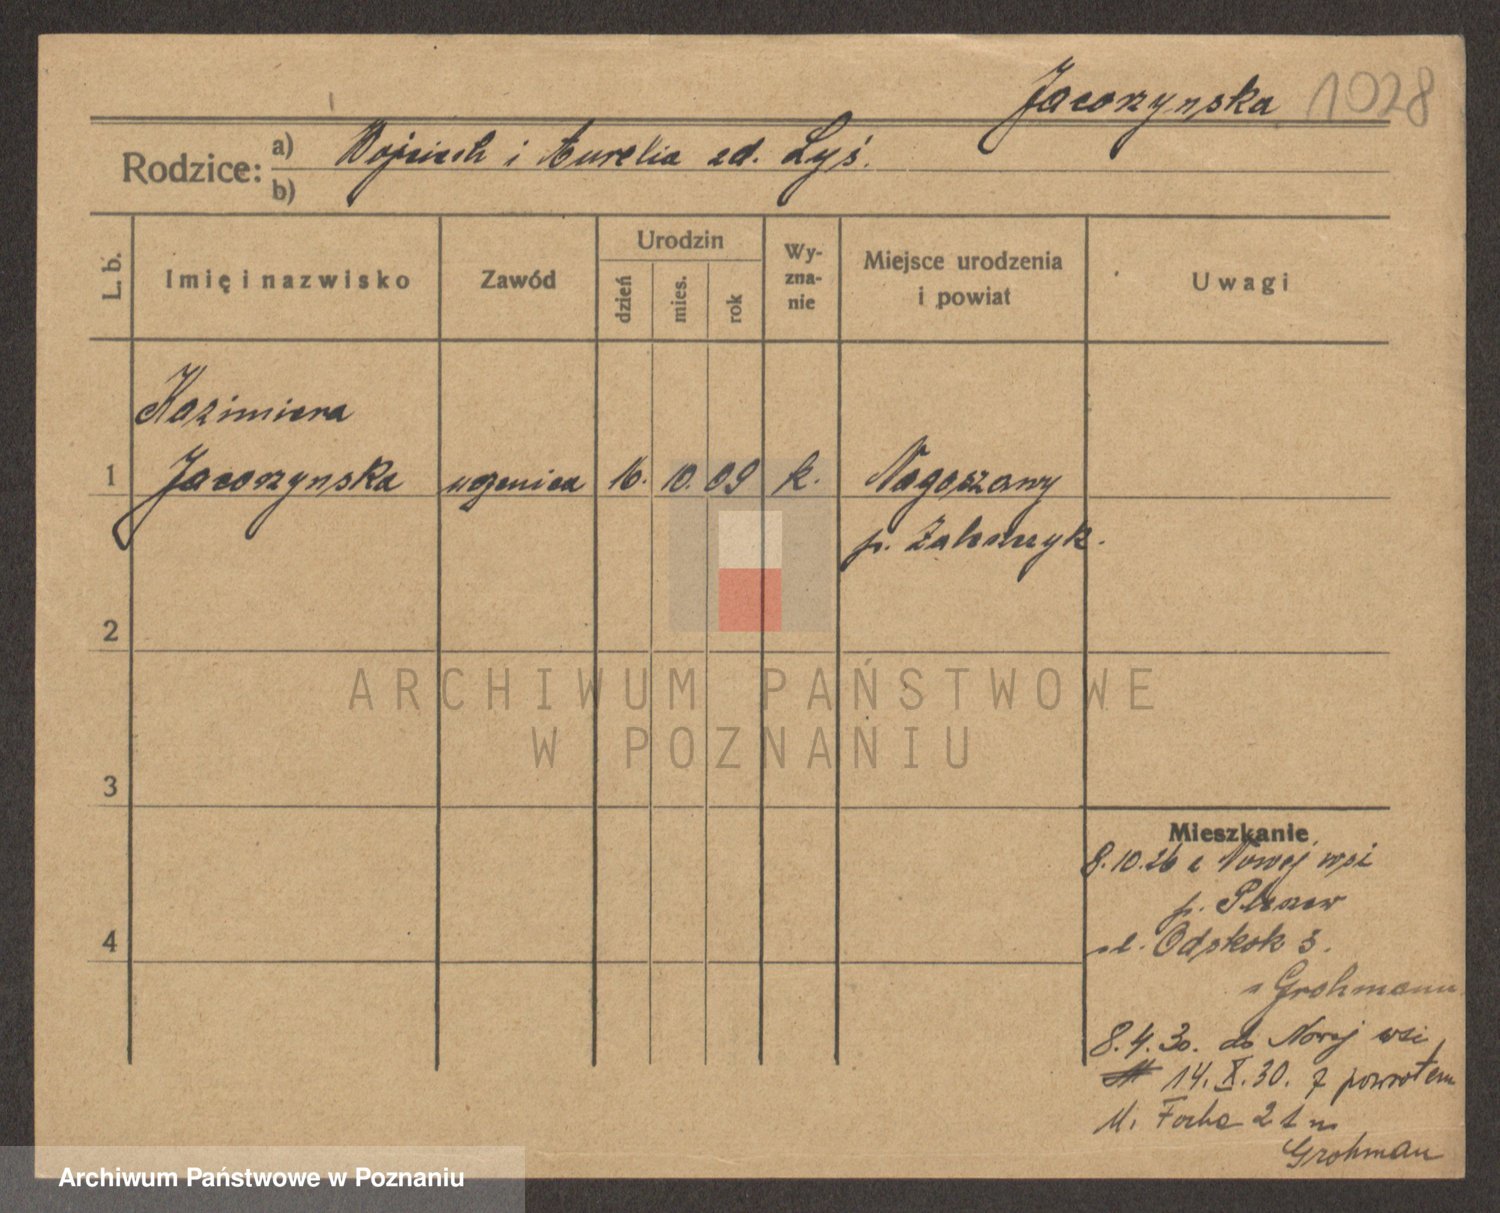 Jacorzynska 1028
Rodzice: a) Wojciech i Aurelia zd. Łyś.
b)
L. b. Imię i nazwisko Zawód Urodzin dzień mies. rok Wy-zna-nie Miejsce urodzenia i powiat Uwagi
Kazimiera
1 Jacorzynska uczenica 16. 10. 09 k. Nagorzany
p. Zaleszczyk.
2
3
4
Mieszkanie
8.10.26 z Nowej wsi
p. Pleszew
ul. Odskok 3.
u Grohmann
8.4.30. do Nowej wsi
14. X. 30. z powrotem
M. Focha 21 m
Grohman
ARCHIWUM PAŃSTWOWE
W POZNANIU
Archiwum Państwowe w Poznaniu